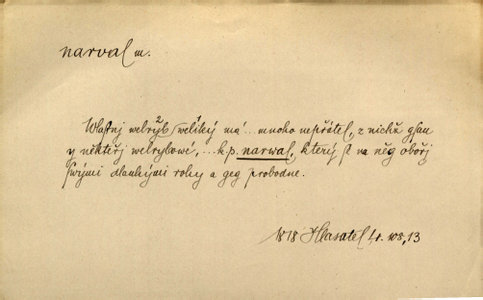 narval m.
Wlastnj welryb (weliký má ... mnoho nepřátel, z nichž gsau
y někteřj welrybowé, ... k.p. narwal, který se na něg obořj
swými dlauhými rohy a geg probodne.
1818 Hlasatel 4. 108,13